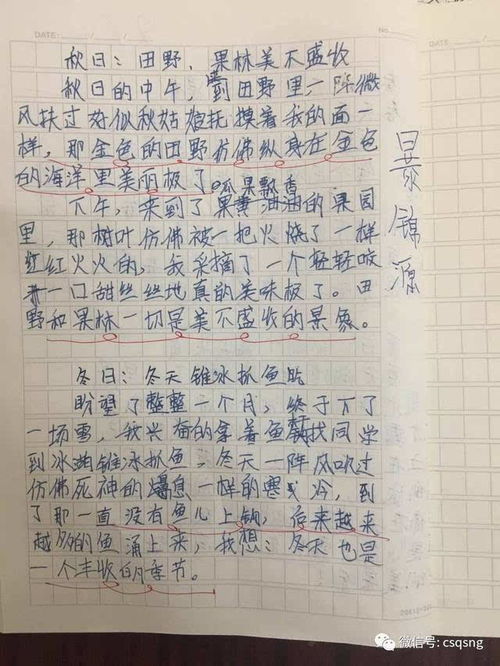 DATE:
No.
秋日：田野、果林美不盛收
秋日的中午，到田野里，一阵微
风扶过好似秋姑娘抚摸着我的面一
样，那金色的田野仿佛纵身在金色
的海洋里美丽极了。瓜果飘香
下午，来到了黄油油的果园
里，那树叶仿佛被一把火烧了一样
红红火火的，我采摘了一个轻轻咬
一口甜丝丝地真的美味极了。田
野和果林一切是美不盛收的景象。
冬日：冬天锥冰抓鱼
盼望了整整一个月，终于下了
一场雪，我兴奋的拿着鱼找同学
到冰湖锥冰抓鱼，冬天一阵风吹过
仿佛死神的息一样的寒冷，到
了那一直没有鱼儿上钩，后来越来
越多的鱼涌上来，我想：冬天也是
一个丰收的季节。
景锦源
DATE
微信号: csqsng